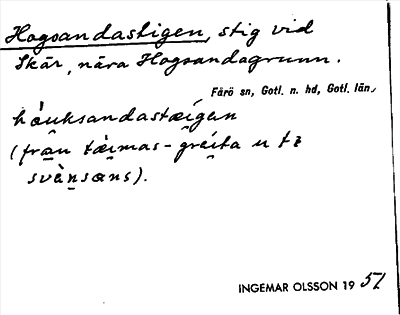 Hogsandastigen, stig vid
Skär, nära Hogsandagrunn.
Fårö sn, Gotl. n. hd, Gotl. län,
hȯuksandastæígen
(från tæ̀imas-græíta u tɛ
svæ̀nsans).
INGEMAR OLSSON 1951